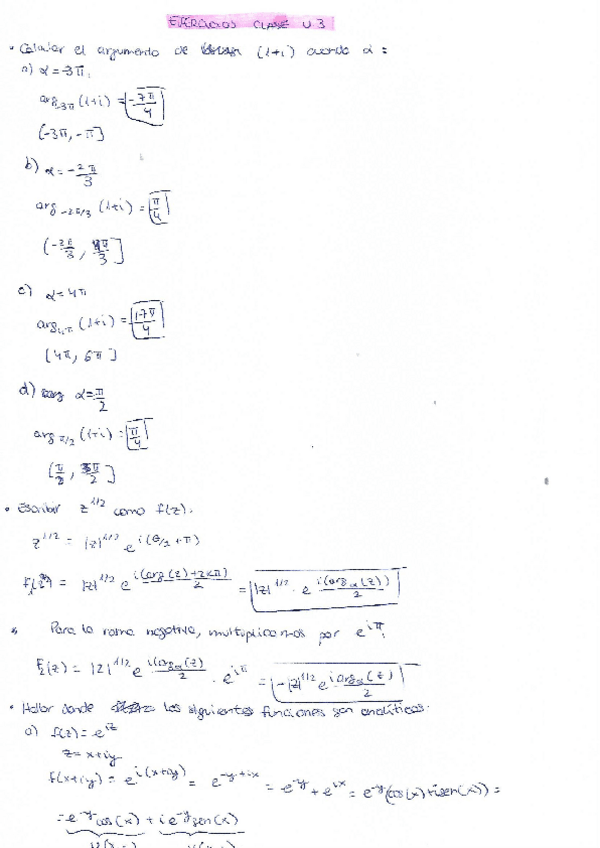 EJERCICIOS CLASE U.3
• Calcular el argumento de (1+i) cuando α =
a) α = -3π.
arg₋₃π (1+i) = -7π/4
(-3π, -π]
b) α = -2π/3
arg₋₂π/₃ (1+i) = π/4
(-2π/3, 4π/3]
c) α = 4π
arg₄π (1+i) = 17π/4
(4π, 6π]
d) α = π/2
arg π/2 (1+i) = π/4
[π/2, 3π/2]
• Escribir z^1/2 como f(z).
z^1/2 = |z|^1/2 e^i(θ/2 + π)
F₁(z) = |z|^1/2 e^i(arg(z)+2kπ)/2 = |z|^1/2 · e^i(argα(z))/2
Para la rama negativa, multiplicamos por e^iπ.
F₂(z) = |z|^1/2 e^i(argα(z))/2 · e^iπ = -|z|^1/2 e^i argα(z)/2
• Hallar donde las siguientes funciones son analíticas.
a) f(z) = e^iz
z = x+iy
f(x+iy) = e^i(x+iy) = e^-y+ix = e^-y + e^ix = e^-y(cos(x)+isen(x)) =
= e^-y cos(x) + i e^-y sen(x)